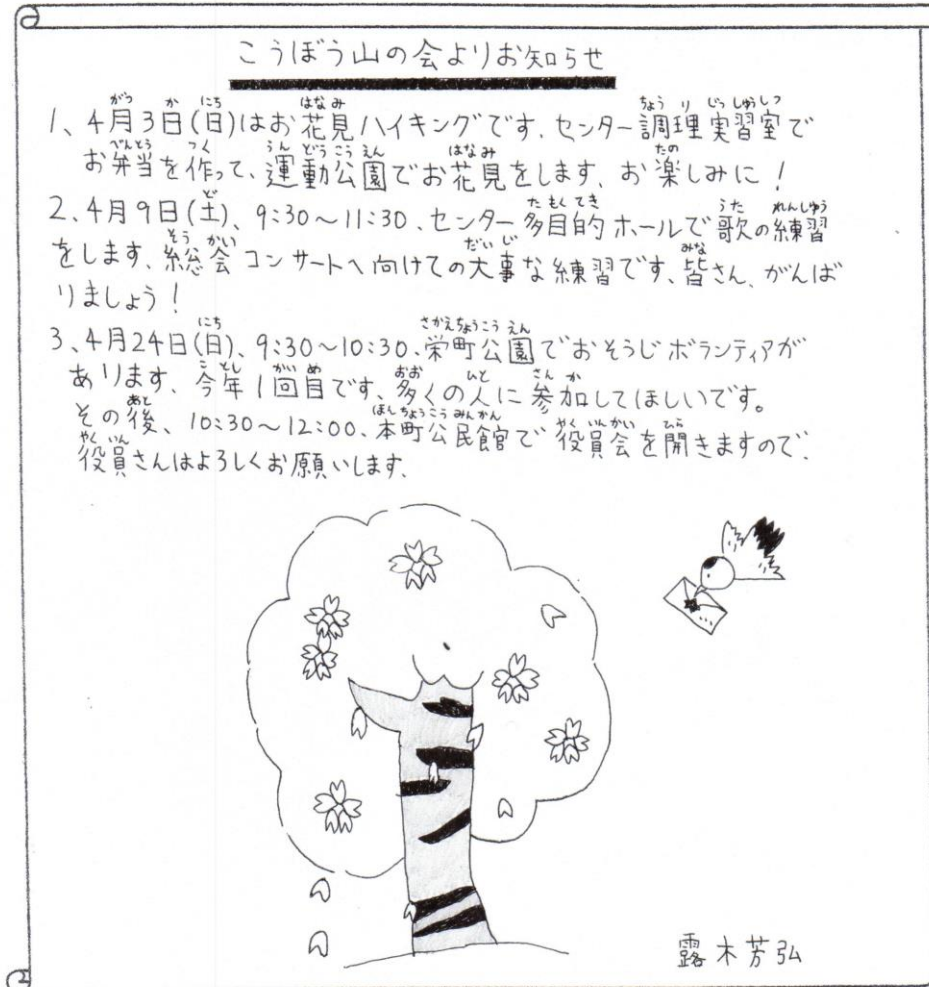 こうぼう山の会よりお知らせ
1、4月3日(日)はお花見ハイキングです、センター調理実習室で
お弁当を作って、運動公園でお花見をします、お楽しみに！
2、4月9日(土)、9:30〜11:30、センター多目的ホールで歌の練習
をします、総会コンサートへ向けての大事な練習です、皆さん、がんば
りましょう！
3、4月24日(日)、9:30〜10:30、栄町公園でおそうじボランティアが
あります、今年1回目です、多くの人に参加してほしいです。
その後、10:30〜12:00、本町公民館で役員会を開きますので、
役員さんはよろしくお願いします、
露木芳弘